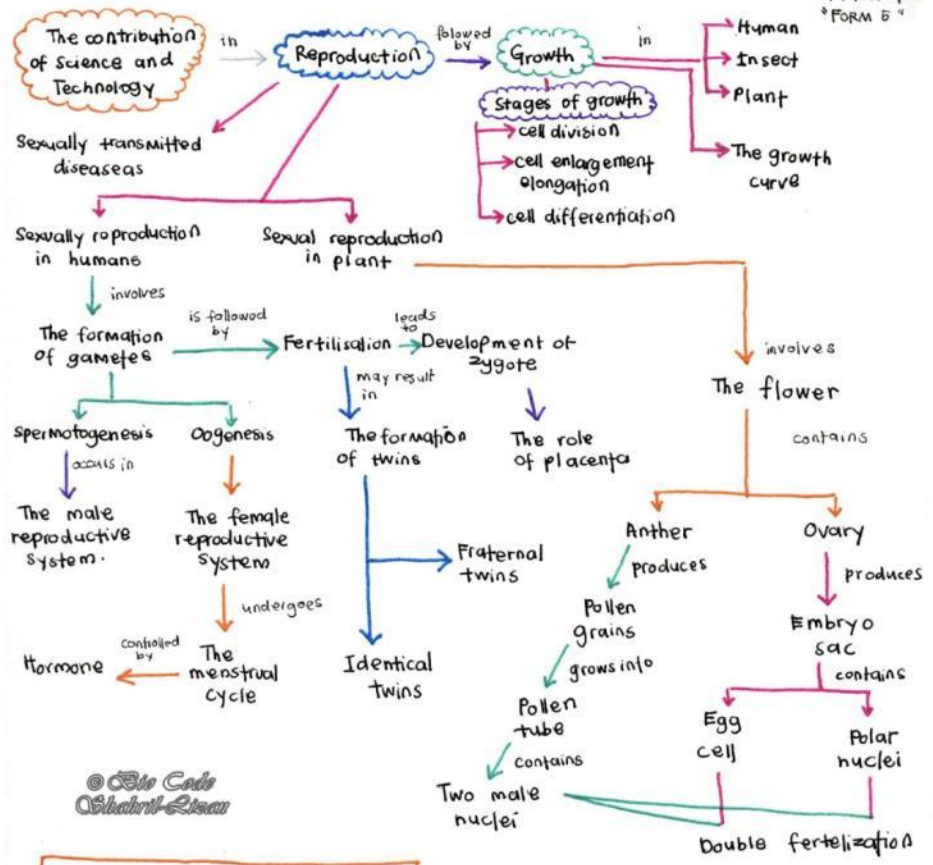 "FORM 5"
The contribution
of Science and
Technology
in
Reproduction
folowed
by
Growth
in
Human
Insect
Plant
The growth
curve
Stages of growth
cell division
cell enlargement
elongation
cell differentiation
Sexually transmitted
diseaseas
Sexually reproduction
in humans
Sexual reproduction
in plant
involves
The formation
of gametes
is followed
by
Fertilisation
leads
to
Development of
zygote
may result
in
The formation
of twins
The role
of placenta
Spermotogenesis
Oogenesis
occurs in
The male
reproductive
system.
The female
reproductive
system
undergoes
The
menstrual
cycle
controlled
by
Hormone
Fraternal
twins
Identical
twins
involves
The flower
contains
Anther
Ovary
produces
Pollen
grains
grows into
Pollen
tube
contains
Two male
nuclei
produces
Embryo
sac
contains
Egg
cell
Polar
nuclei
Double fertelization
© Bio Code
Shahril-Lizan